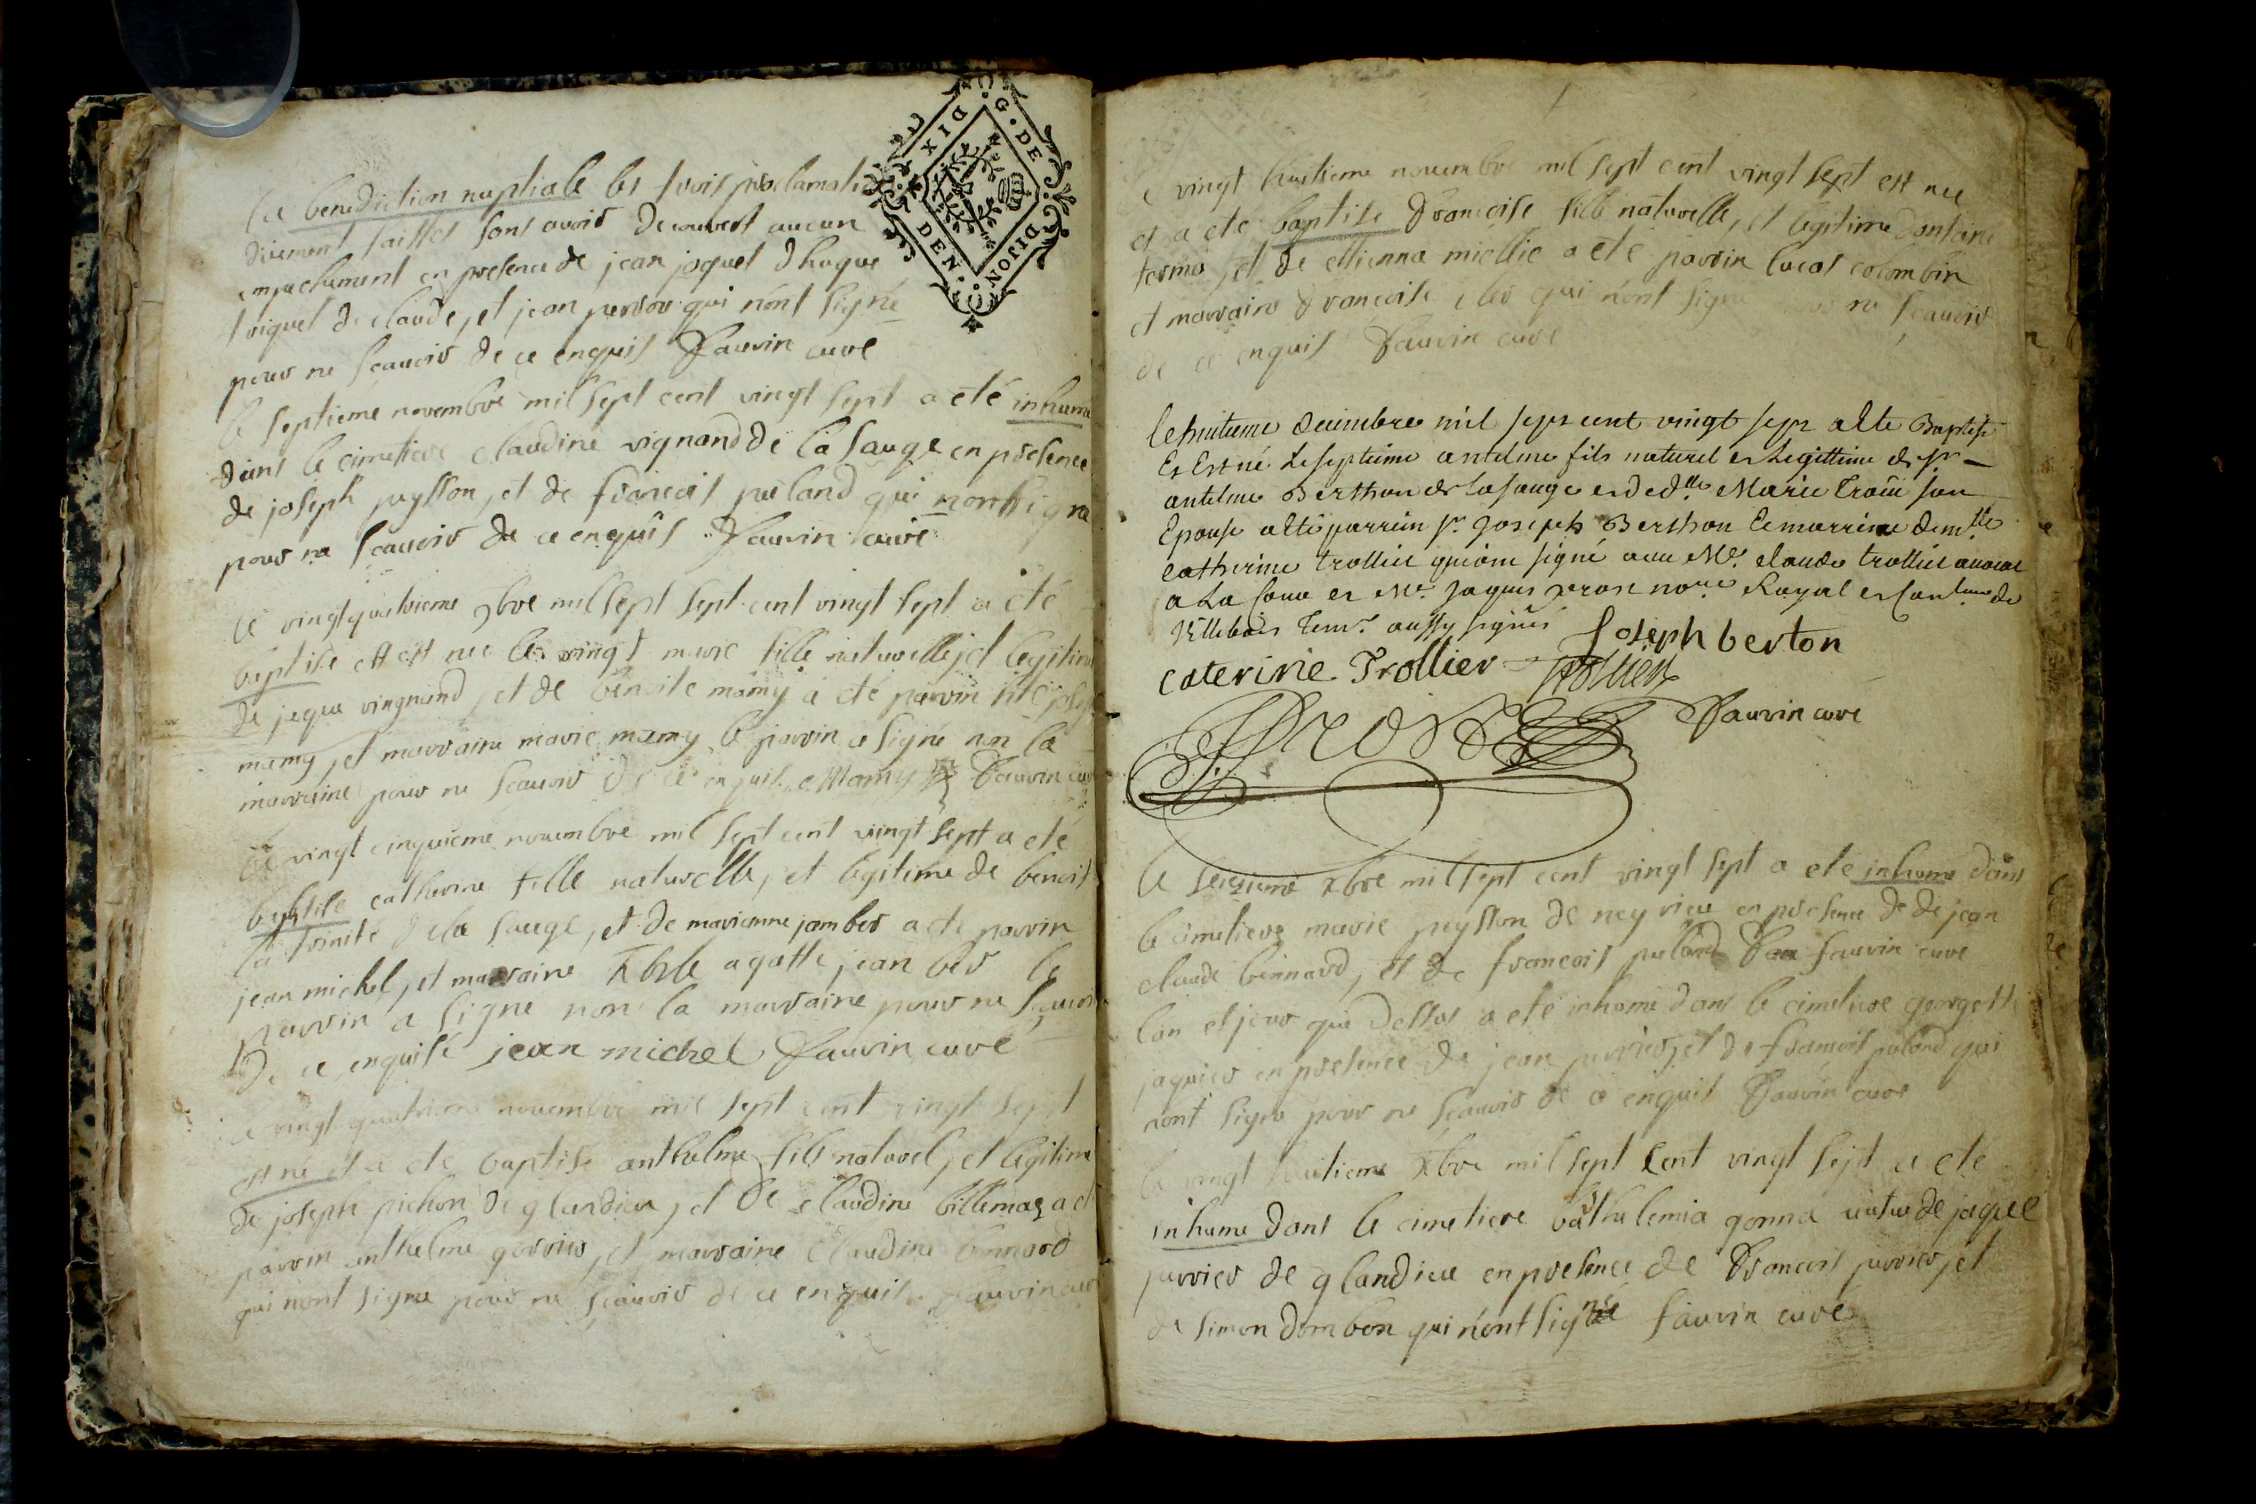 la benediction nuptiale les trois proclamati
duement faittes sans avoir decouvert aucun
empechement en presence de jean joquet d hugue
triquet de claude, et jean perror qui n'ont signé
pour ne scauoir de ce enquis fauvin curé
G. DE DIJON DIX DEN.
le septieme novembre mil sept cent vingt sept a eté inhumé
dans le cimetiere claudine vignand de la sauge en presence
de joseph peysson, et de francois puland qui n'ont signe
pour ne scauoir de ce enquis fauvin curé
le vingt quatrieme 9bre mil sept sept cent vingt sept a été
baptise et est nee le vingt marie fille naturelle, et legitime
de jaque vingnand, et de benoite mamy a eté parrin
mamy, et marraine marie mamy le parrin a signé non la
marraine pour ne scauoir de ce enquis Mamy fauvin curé
le vingt cinquieme nouembre mil sept cent vingt sept a eté
baptise catherine fille naturelle, et legitime de benoist
la trinité de la sauge, et de marianne jamber a eté parrin
jean michel, et marraine agatte jean ber le
parrin a signe non la marraine pour ne scauoir
de ce enquise jean michel fauvin curé
le vingt quatrieme nouembre mil sept cent vingt sept
est né et a eté baptise anthelme fils naturel, et legitime
de joseph pichon de glandieu, et de claudine billemaz a eté
parrin anthelme gerrier, et marraine claudine bennard
qui nont signe pour ne scauoir de ce enquis fauvin curé
le vingt huitieme nouembre mil sept cent vingt sept est nee
et a eté baptise francoise fille naturelle, et legitime dantoine
termo, et de ettienna miellie a eté parrin lucas colombin
et marraine francoise qui n'ont signe pour ne scauoir
de ce enquis fauvin curé
le huitieme decembre mil sept cent vingt sept a ete Baptise
Et Est né Le septieme antelme fils naturel et Legittime de sr
antelme Berthon de La sauge et de dlle Marie son
Epouse a eté parrein sr joseph Berthon Et marreine demlle
catherine trollier qui ont signé avec Me claude trollier auocat
a La Cour et Me jaques prost nore Royal et de
Villebois Temr aussy signés
Joseph berton
caterine Trollier
trollier
fauvin curé
PROST
le seizieme xbre mil sept cent vingt sept a eté inhumé dans
le cimetiere marie peysson de neyrieu en presence de de jean
claude bennard, et de francois puland fauvin curé
lan et jour que dessus a eté inhumé dans le cimetiere georgette
jaquier en presence de jean purrier, et de francois puland qui
nont signe pour ne scauoir de ce enquis fauvin curé
le vingt huitieme xbre mil sept cent vingt sept a eté
inhume dans le cimetiere barthelemia gonna veuve de jaque
purrier de glandieu en presence de francois purrier, et
de simon dombon qui n'ont signé fauvin curé